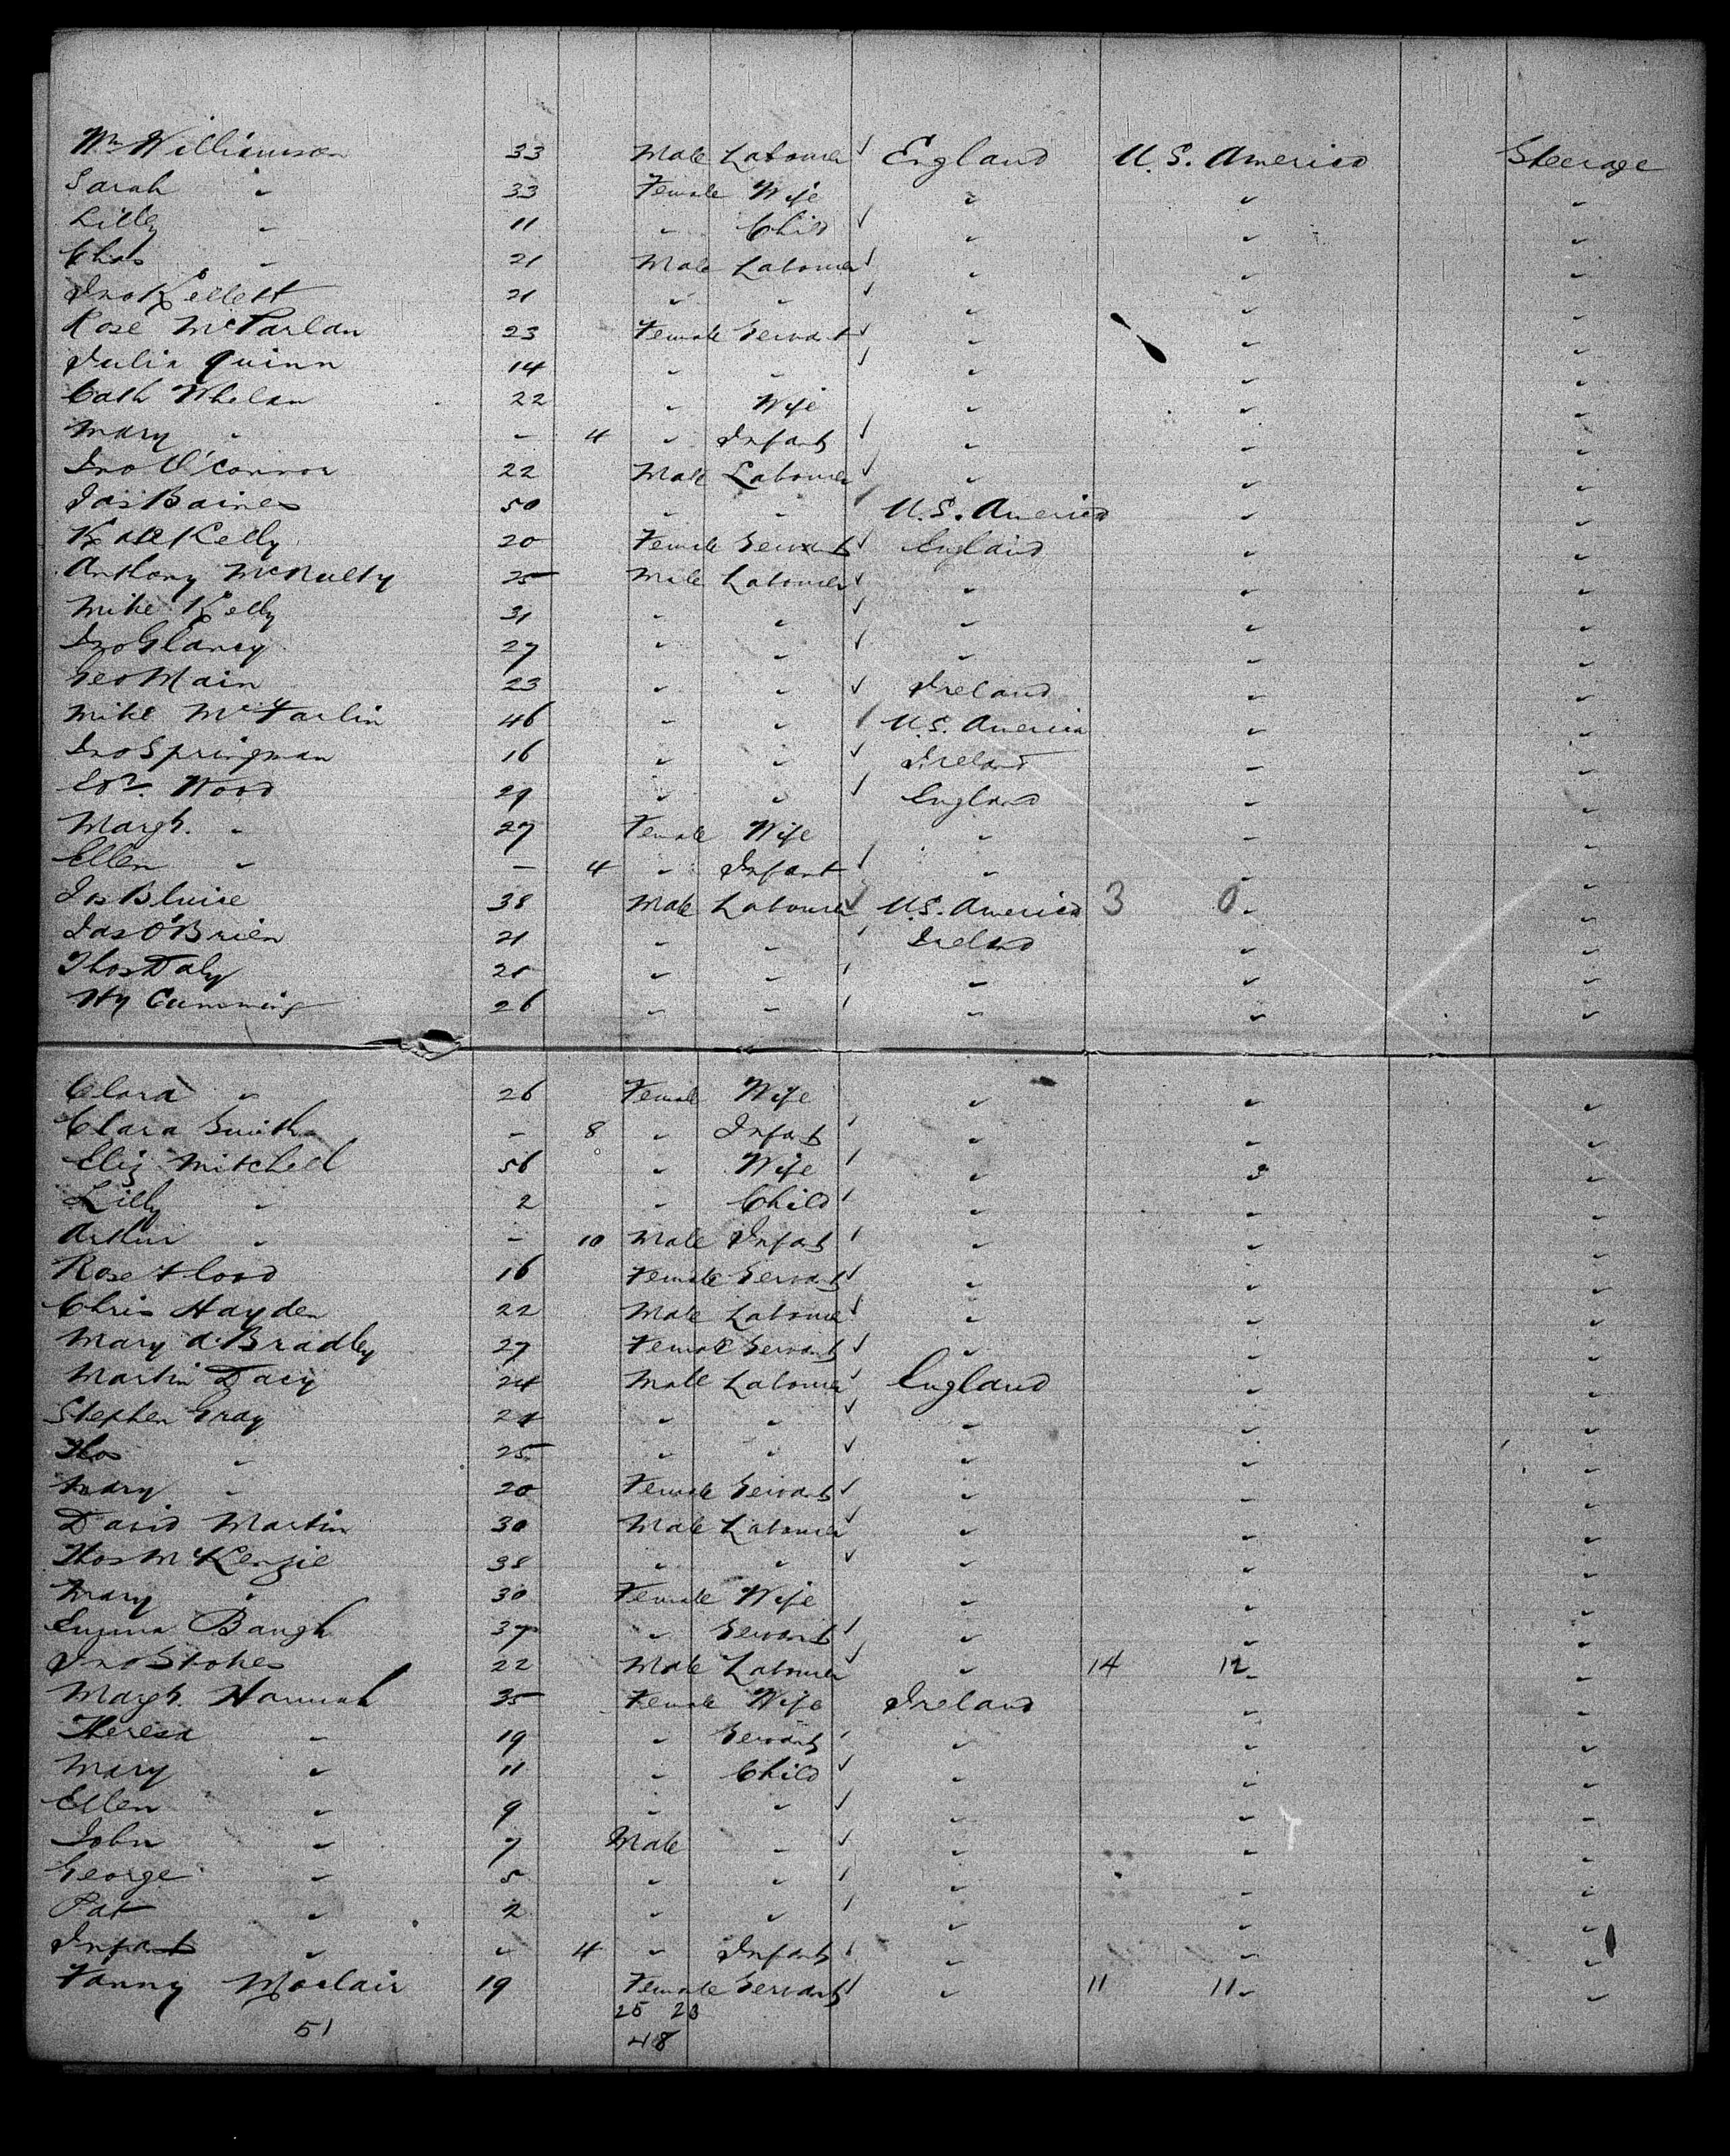 Wm Williamson 33 Male Labourer England U.S. America Steerage
Sarah " 33 Female Wife " " "
Lilly " 11 " Child " " "
Chas " 21 Male Labourer " " "
Jno Kellett 21 " " " " "
Rose McParlan 23 Female Servant " " "
Julia Quinn 14 " " " " "
Cath Whelan 22 " Wife " " "
Mary " - 4 " Infant " " "
Jno O'Connor 22 Male Labourer " " "
Jas Baines 50 " " U.S. America " "
Kate Kelly 20 Female Servant England " "
Anthony McNulty 25 Male Labourer " " "
Mike Kelly 31 " " " " "
Jno Glancy 27 " " " " "
Geo Main 23 " " Ireland " "
Mike McFarlin 46 " " U.S. America " "
Jno Springman 16 " " Ireland " "
Edw. Wood 29 " " England " "
Margt. " 27 Female Wife " " "
Ellen " - 4 " Infant " " "
38 Male Labourer U.S. America 3 0 " "
Jas O'Brien 21 " " Ireland " "
Thos Daly 21 " " " " "
Hy Cumming 26 " " " " "
Clara " 26 Female Wife " " "
Clara Smith - 8 " Infant " " "
Eliz Mitchell 56 " Wife " " "
Lilly " 2 " Child " " "
Arthur " - 10 Male Infant " " "
Rose Flood 16 Female Servant " " "
Chris Hayden 22 Male Labourer " " "
Mary A. Bradley 27 Female Servant " " "
Martin Dacy 24 Male Labourer England " "
Stephen Gray 21 " " " " "
Thos " 25 " " " " "
Mary " 20 Female Servant " " "
David Martin 30 Male Labourer " " "
Thos McKenzie 38 " " " " "
Mary " 30 Female Wife " " "
Emma Baugh 37 " Servant " " "
Jno Stokes 22 Male Labourer " 14 12 " "
Margt. Hannah 35 Female Wife Ireland " "
Theresa " 19 " Servant " " "
Mary " 11 " Child " " "
Ellen " 9 " " " " "
John " 7 Male " " " "
George " 5 " " " " "
Pat " 2 " " " " "
Infant " " 4 " Infant " " "
Fanny Moclair 19 Female Servant " 11 11 " "
25 23
51 48